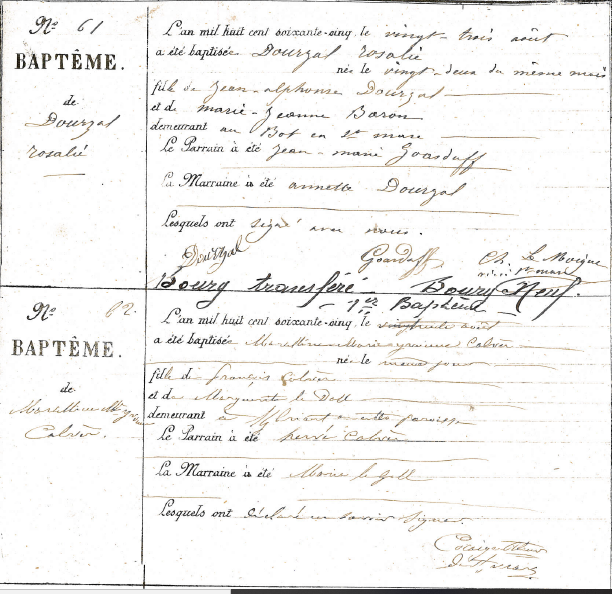 N° 61
BAPTÊME.
de
Dourzal
rosalie
L'an mil huit cent soixante-cinq, le vingt-trois août
a été baptisée Dourzal rosalie
née le vingt-deux du même mois
fille de jean-alphonse Dourzal
et de marie-jeanne Baron
demeurant au Bot en St marc
Le Parrain a été jean-marie Goasduff
La Marraine a été annette Dourzal
Lesquels ont signé avec nous.
Dourzal Goasduff Ch. Le Moigne
St marc
Bourg transféré - Bourg Neuf.
- 1er Baptême -
N° 62.
BAPTÊME.
de
Calvez.
L'an mil huit cent soixante-cinq, le août
a été baptisée Marie Calvez
née le même jour
fille de françois Calvez
et de Marguerite le Doll
demeurant à en cette paroisse
Le Parrain a été hervé Calvez
La Marraine a été Marie le Gall
Lesquels ont déclaré ne savoir signer.